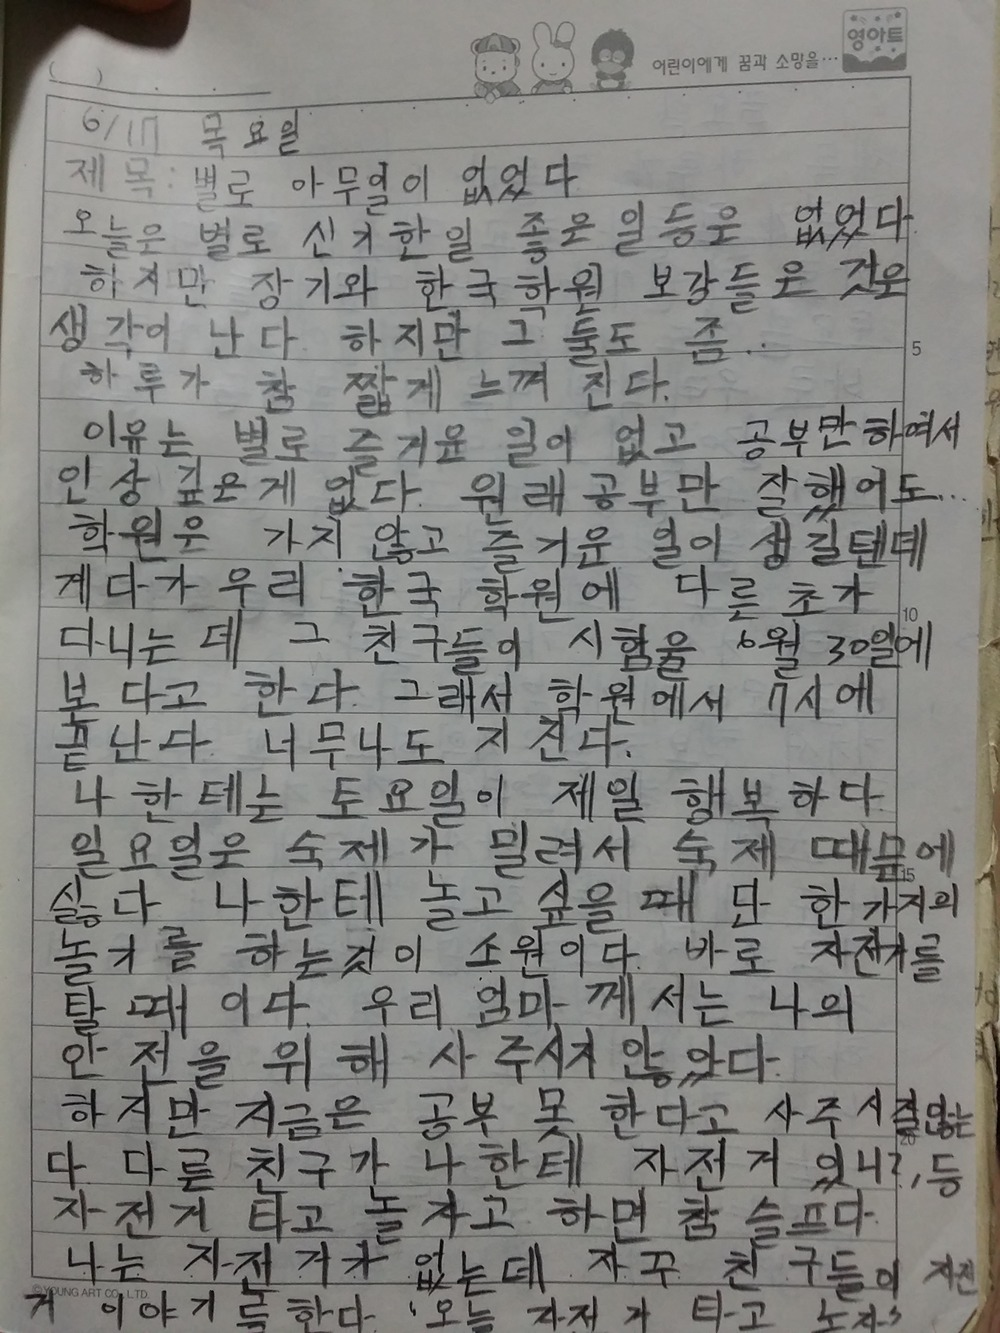 영아트
어린이에게 꿈과 소망을…
( )
6/17 목요일
제목: 별로 아무일이 없었다
오늘은 별로 신기한일 좋은 일 등은 없었다
하지만 장기와 한국학원 보강들은 것은
생각이 난다. 하지만 그 둘도 좀..
5
하루가 참 짧게 느껴 진다.
이유는 별로 즐거운 일이 없고 공부만하여서
인상 깊은게 없다. 원래 공부만 잘했어도...
학원은 가지 않고 즐거운 일이 생길텐데
게다가 우리 한국 학원에 다른 초가
10
다니는데 그 친구들이 시험을 6월 30일에
본다고 한다. 그래서 학원에서 7시에
끝난다. 너무나도 지친다.
나한테는 토요일이 제일 행복하다
일요일은 숙제가 밀려서 숙제 때문에
15
싫다 나한테 놀고 싶을 때 단 한가지의
놀기를 하는것이 소원이다 바로 자전거를
탈 때 이다. 우리 엄마께서는 나의
안전을 위해 사주시지 않았다.
하지만 지금은 공부 못 한다고 사주시질않는
20
다 다른 친구가 나한테 자전거 있니?, 등
자전거 타고 놀자고 하면 참 슬프다.
나는 자전거가 없는데 자꾸 친구들이 자전
© YOUNG ART CO., LTD.
거 이야기를 한다. '오늘 자전거 타고 노자'